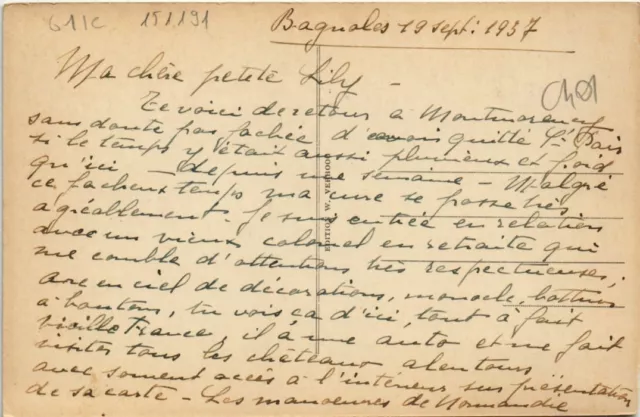 61 1C 151191
Bagnoles 19 sept: 1937
Ma chère petite Lily -
Te voici de retour à Montmorency
sans doute pas fachée d'avoir quitté St Pair
si le temps y était aussi pluvieux et froid
qu'ici - depuis une semaine - Malgré
ce facheux temps ma cure se passe très
agréablement - Je suis entrée en relations
avec un vieux colonel en retraite qui
me comble d'attentions très respectueuses,
arc en ciel de décorations, monocle, bottines
à boutons, tu vois ça d'ici, tout à fait
vieille France, il a une auto et me fait
visiter tous les châteaux alentours
avec souvent accès à l'intérieur sur présentation
de sa carte - Les manoeuvres de Normandie
EDITION W. VERHOOD